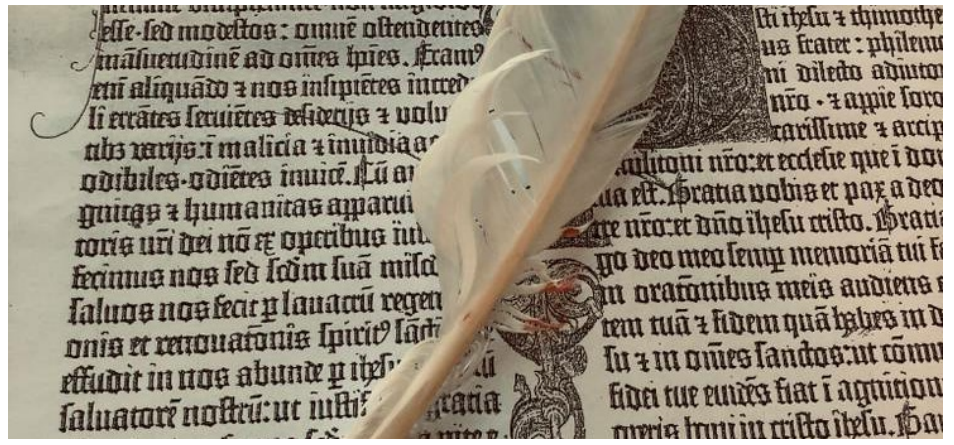 esse·sed modestos: omnē ostendentes
māsuetudinē ad om̄es hōies. Eramꝰ
eni aliquādo ⁊ nos insipiētes incred
li errātes seruiētes desiderijs ⁊ volu
tibꝫ varijs:ī malicia ⁊ inuidia a
odibiles·odiētes inuicē.Cū au
gnitas ⁊ humanitas apparui
toris nr̄i dei nō ex operibus iu
fecimus nos sed scdm suā misc
saluos nos fecit ꝑ lauacrū regen
onis et renouatōnis spiritꝰ sāct
effudit in nos abunde ꝑ ihesu
saluatorē nostrū:ut iusti gratia
sti ihesu ⁊ thimothe
us frater: philemo
ni dilecto adiutor
nr̄o·⁊ appie soro
carissime ⁊ arcip
militoni nr̄o:et ecclesie que ī dom
tua est. Gratia uobis et pax a deo
tre nr̄o:et dn̄o ihesu cristo. Gratia
go deo meo semꝑ memoriā tui fa
in oratōnibus meis audiens
tem tuā ⁊ fidem quā habes in d
su ⁊ in om̄es sanctos:ut cōmu
fidei tue euidēs fiat ī agnition
operis boni in cristo ihesu. Gau